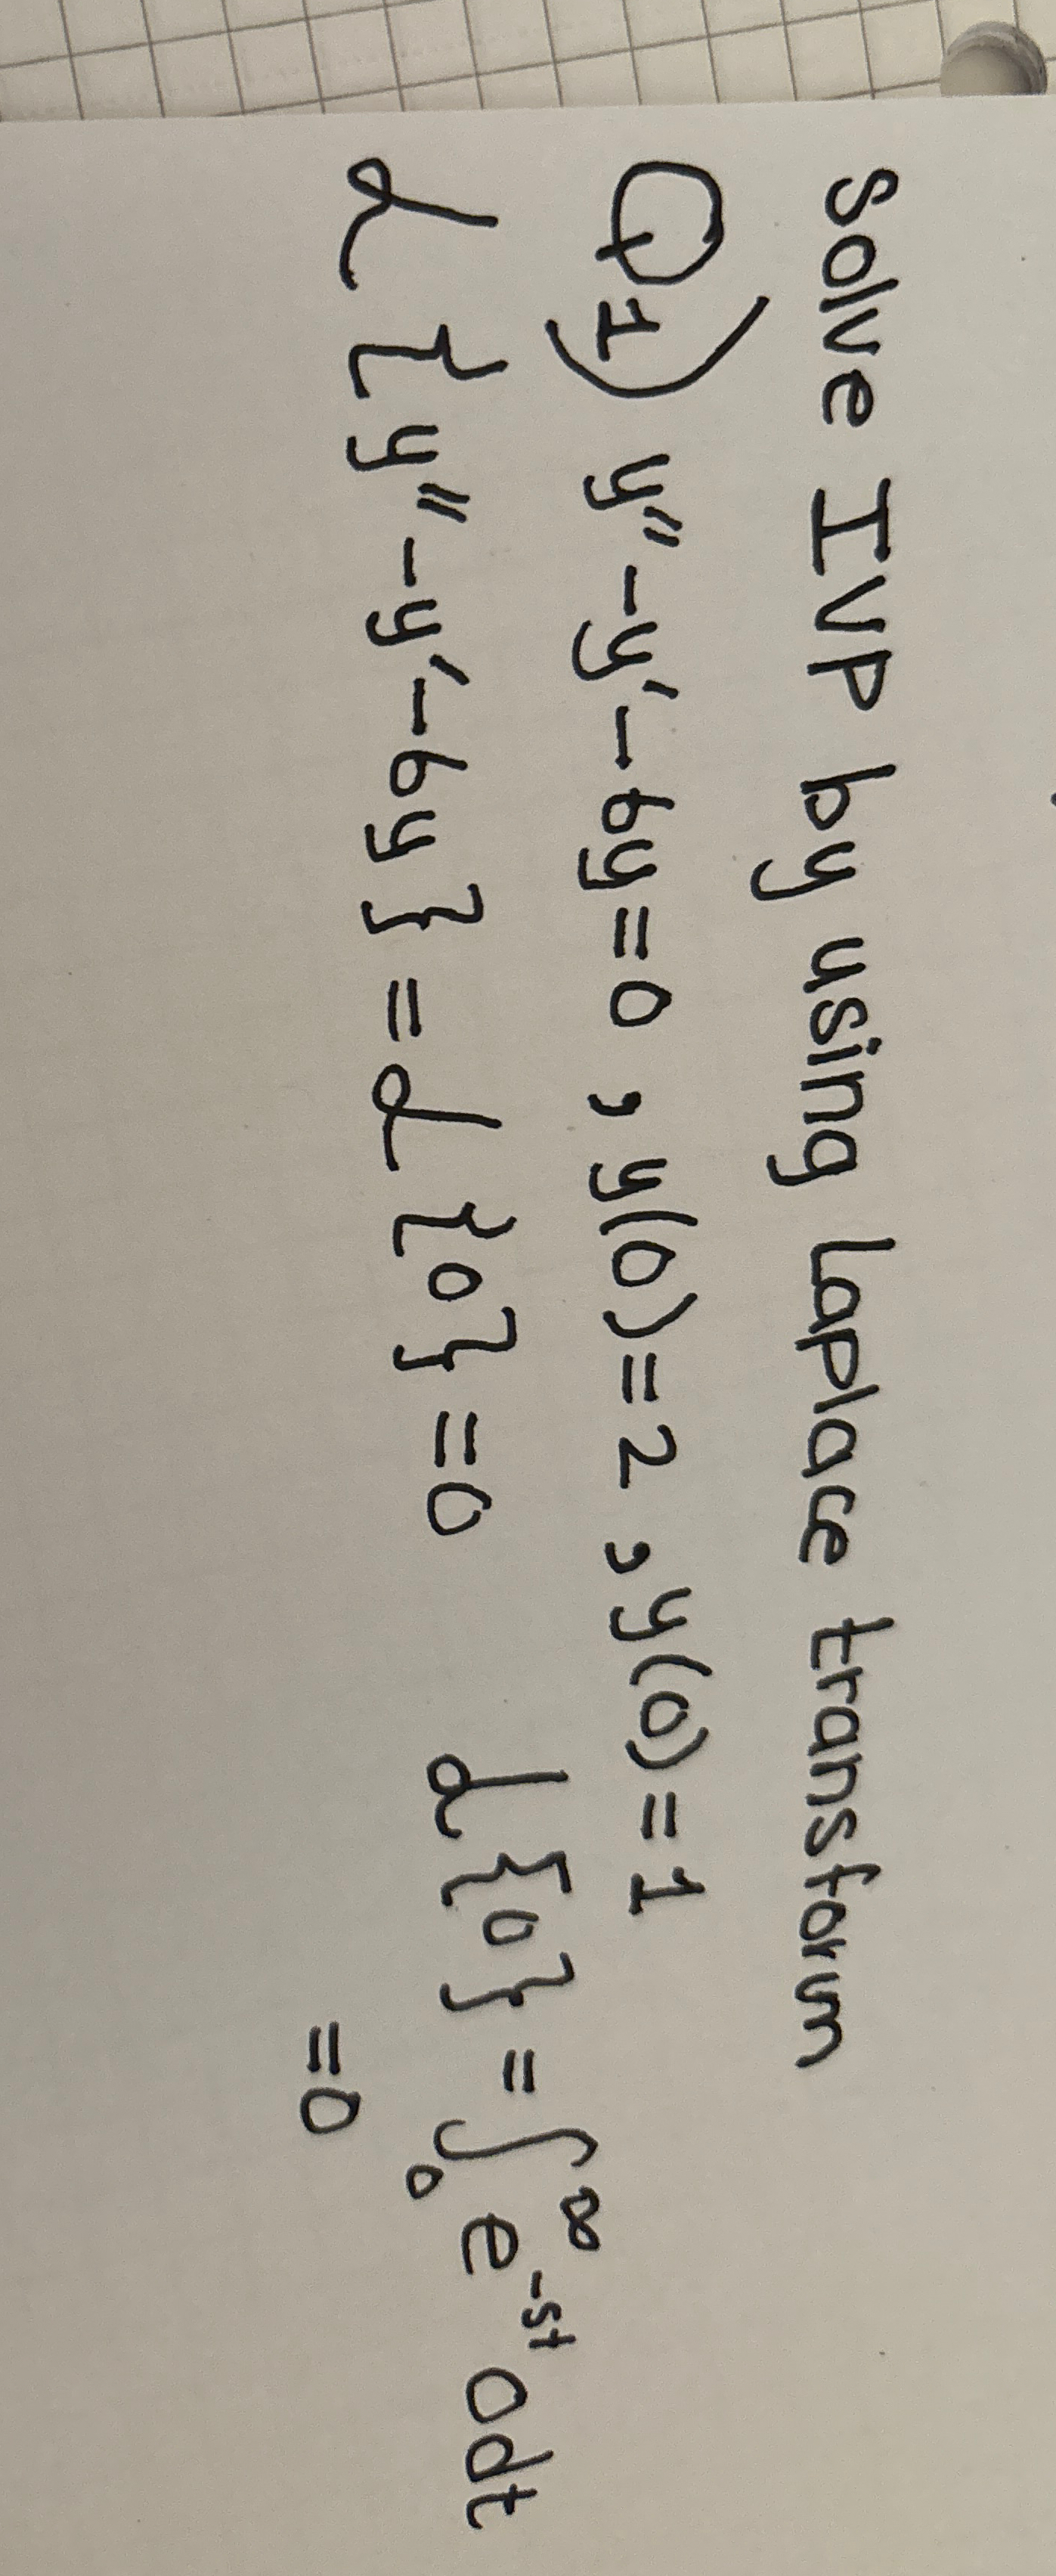 Solve IVP by using Laplace transform
Q1) y'' - y' - 6y = 0 , y(0) = 2 , y(0) = 1
ℒ {y'' - y' - 6y} = ℒ {0} = 0
ℒ {0} = ∫₀^∞ e^-st 0dt
= 0